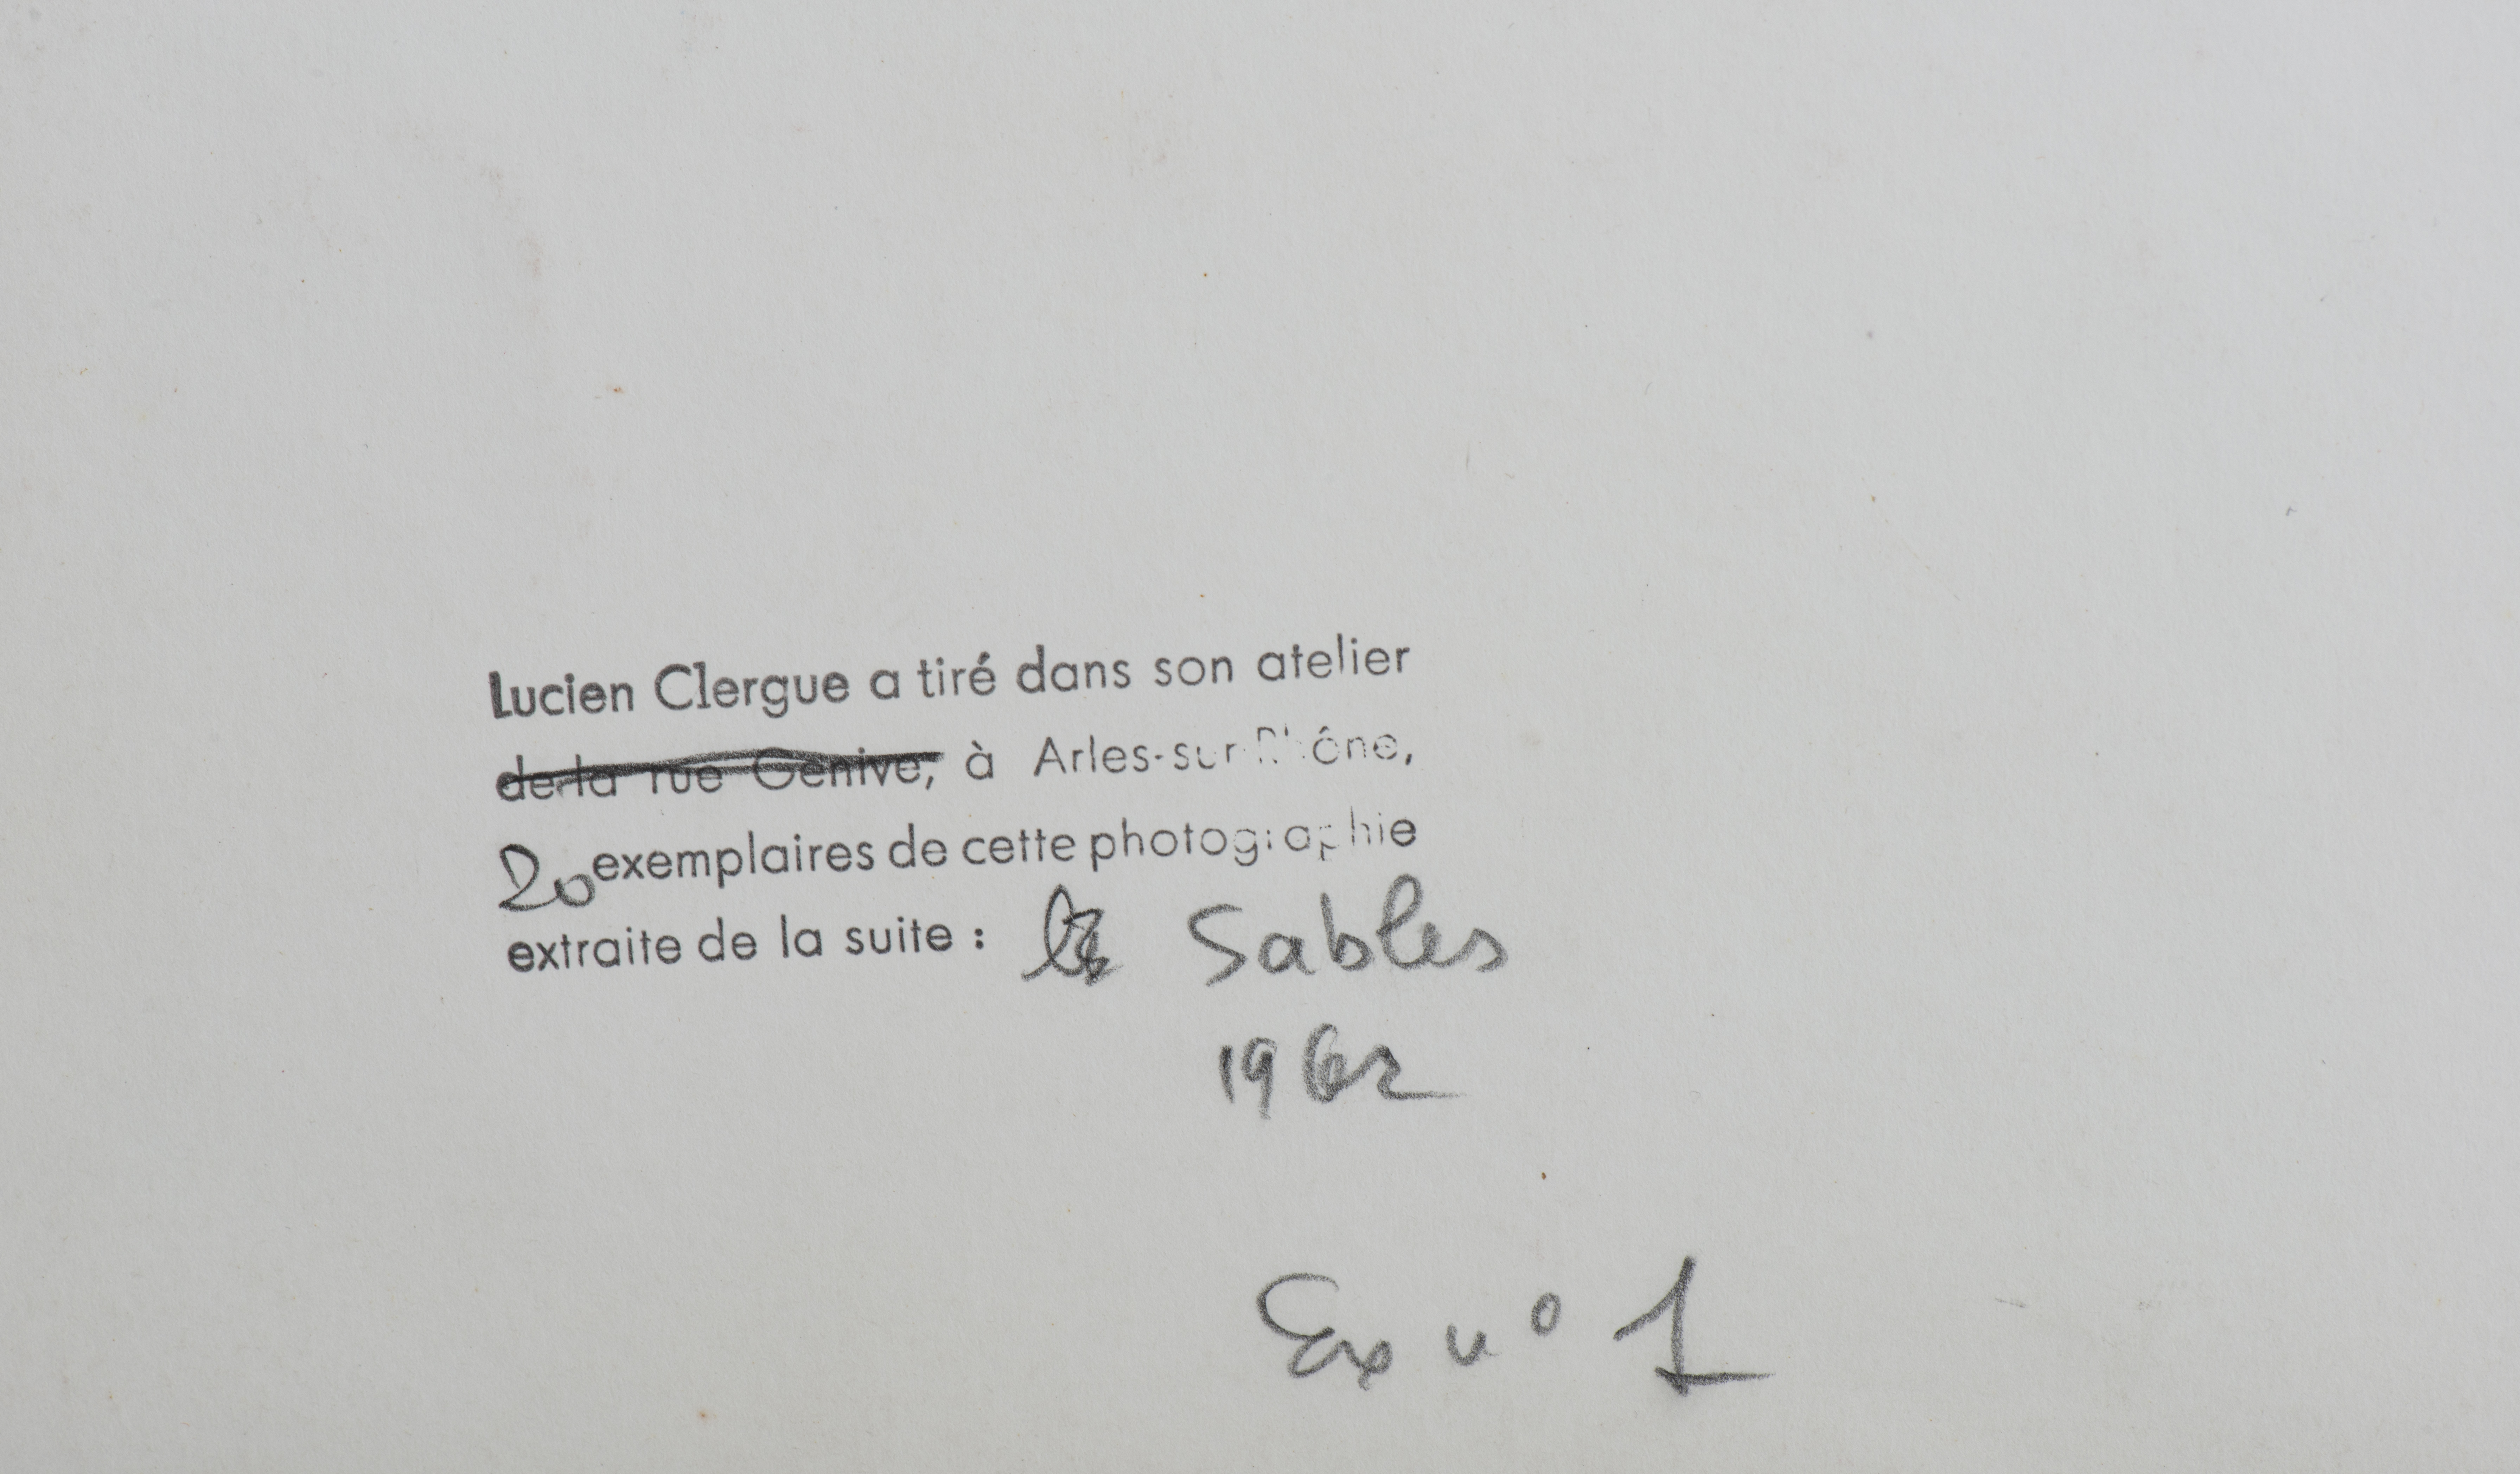 Lucien Clergue a tiré dans son atelier
de la rue Genive, à Arles-sur-Rhône,
20 exemplaires de cette photographie
extraite de la suite : les Sables
1962
Ex n° 1